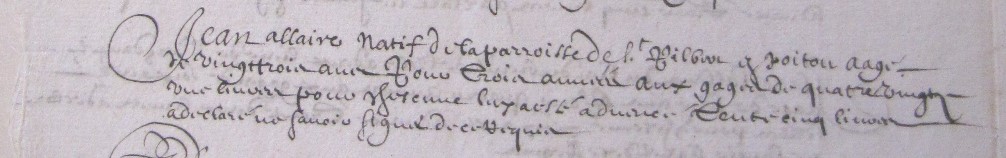 Jean allaire natif de la parroisse de St Philbert en Poitou aage
de vingt trois ans Pour Trois annees aux gages de quatre vingt
une livres pour chacune luy acté advancé Trente cinq livres
a declaré ne scavoir signer de ce requis